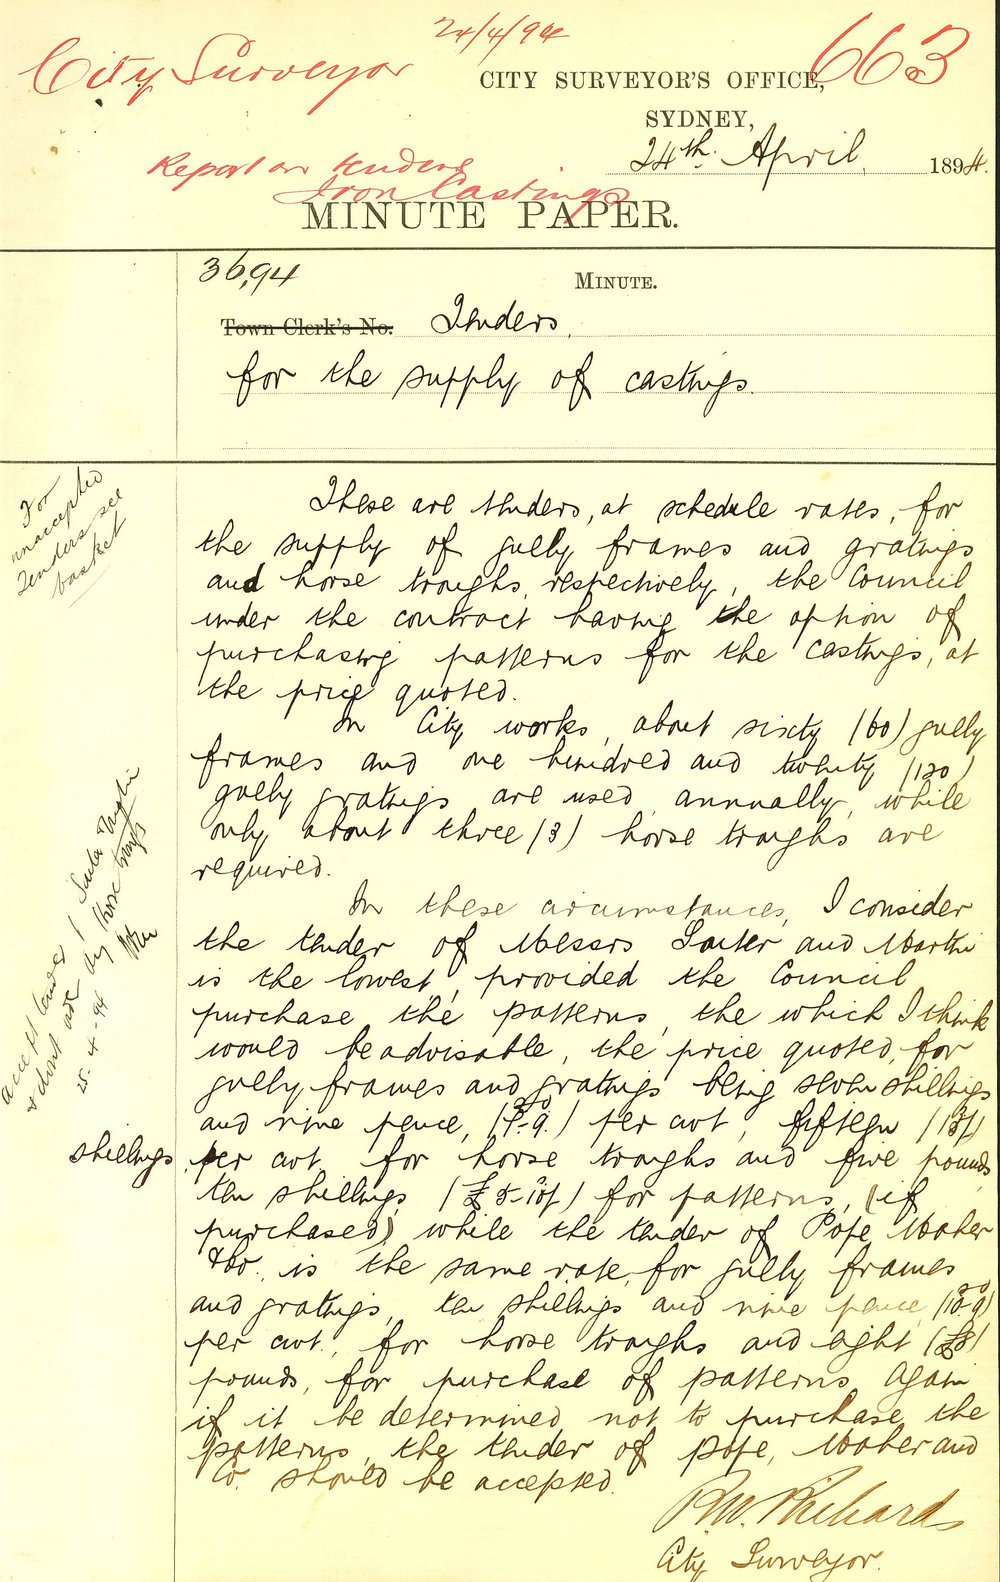 24/4/94
City Surveyor
663
CITY SURVEYOR'S OFFICE,
SYDNEY,
24th April 1894.
Report on tenders
Iron Castings
MINUTE PAPER.
36,94
MINUTE.
Town Clerk's No. Tenders,
for the supply of castings.
For
unaccepted
Tenders see
basket
These are tenders, at schedule rates, for
the supply of gully frames and gratings
and horse troughs, respectively, the Council
under the contract having the option of
purchasing patterns for the castings, at
the price quoted.
In City works, about sixty (60) gully
frames and one hundred and twenty (120)
gully gratings are used annually, while
only about three (3) horse troughs are
required.
In these circumstances, I consider
the tender of Messrs Souter and Martin
is the lowest, provided the Council
purchase the patterns, the which I think
would be advisable, the price quoted, for
gully frames and gratings being seven shillings
and nine pence, (7-9.) per cwt, fifteen (15/)
shillings per cwt. for horse troughs and five pounds
ten shillings (£5-10/) for patterns, (if
purchased) while the tender of Pope Maher
&Co. is the same rate, for gully frames
and gratings, ten shillings and nine pence (10-9)
per cwt., for horse troughs and eight (£8)
pounds, for purchase of patterns. Again
if it be determined not to purchase the
patterns, the tender of Pope, Maher and
Co. should be accepted.
R.W. Richards
City Surveyor.
accept tender
horse troughs
25-4-94